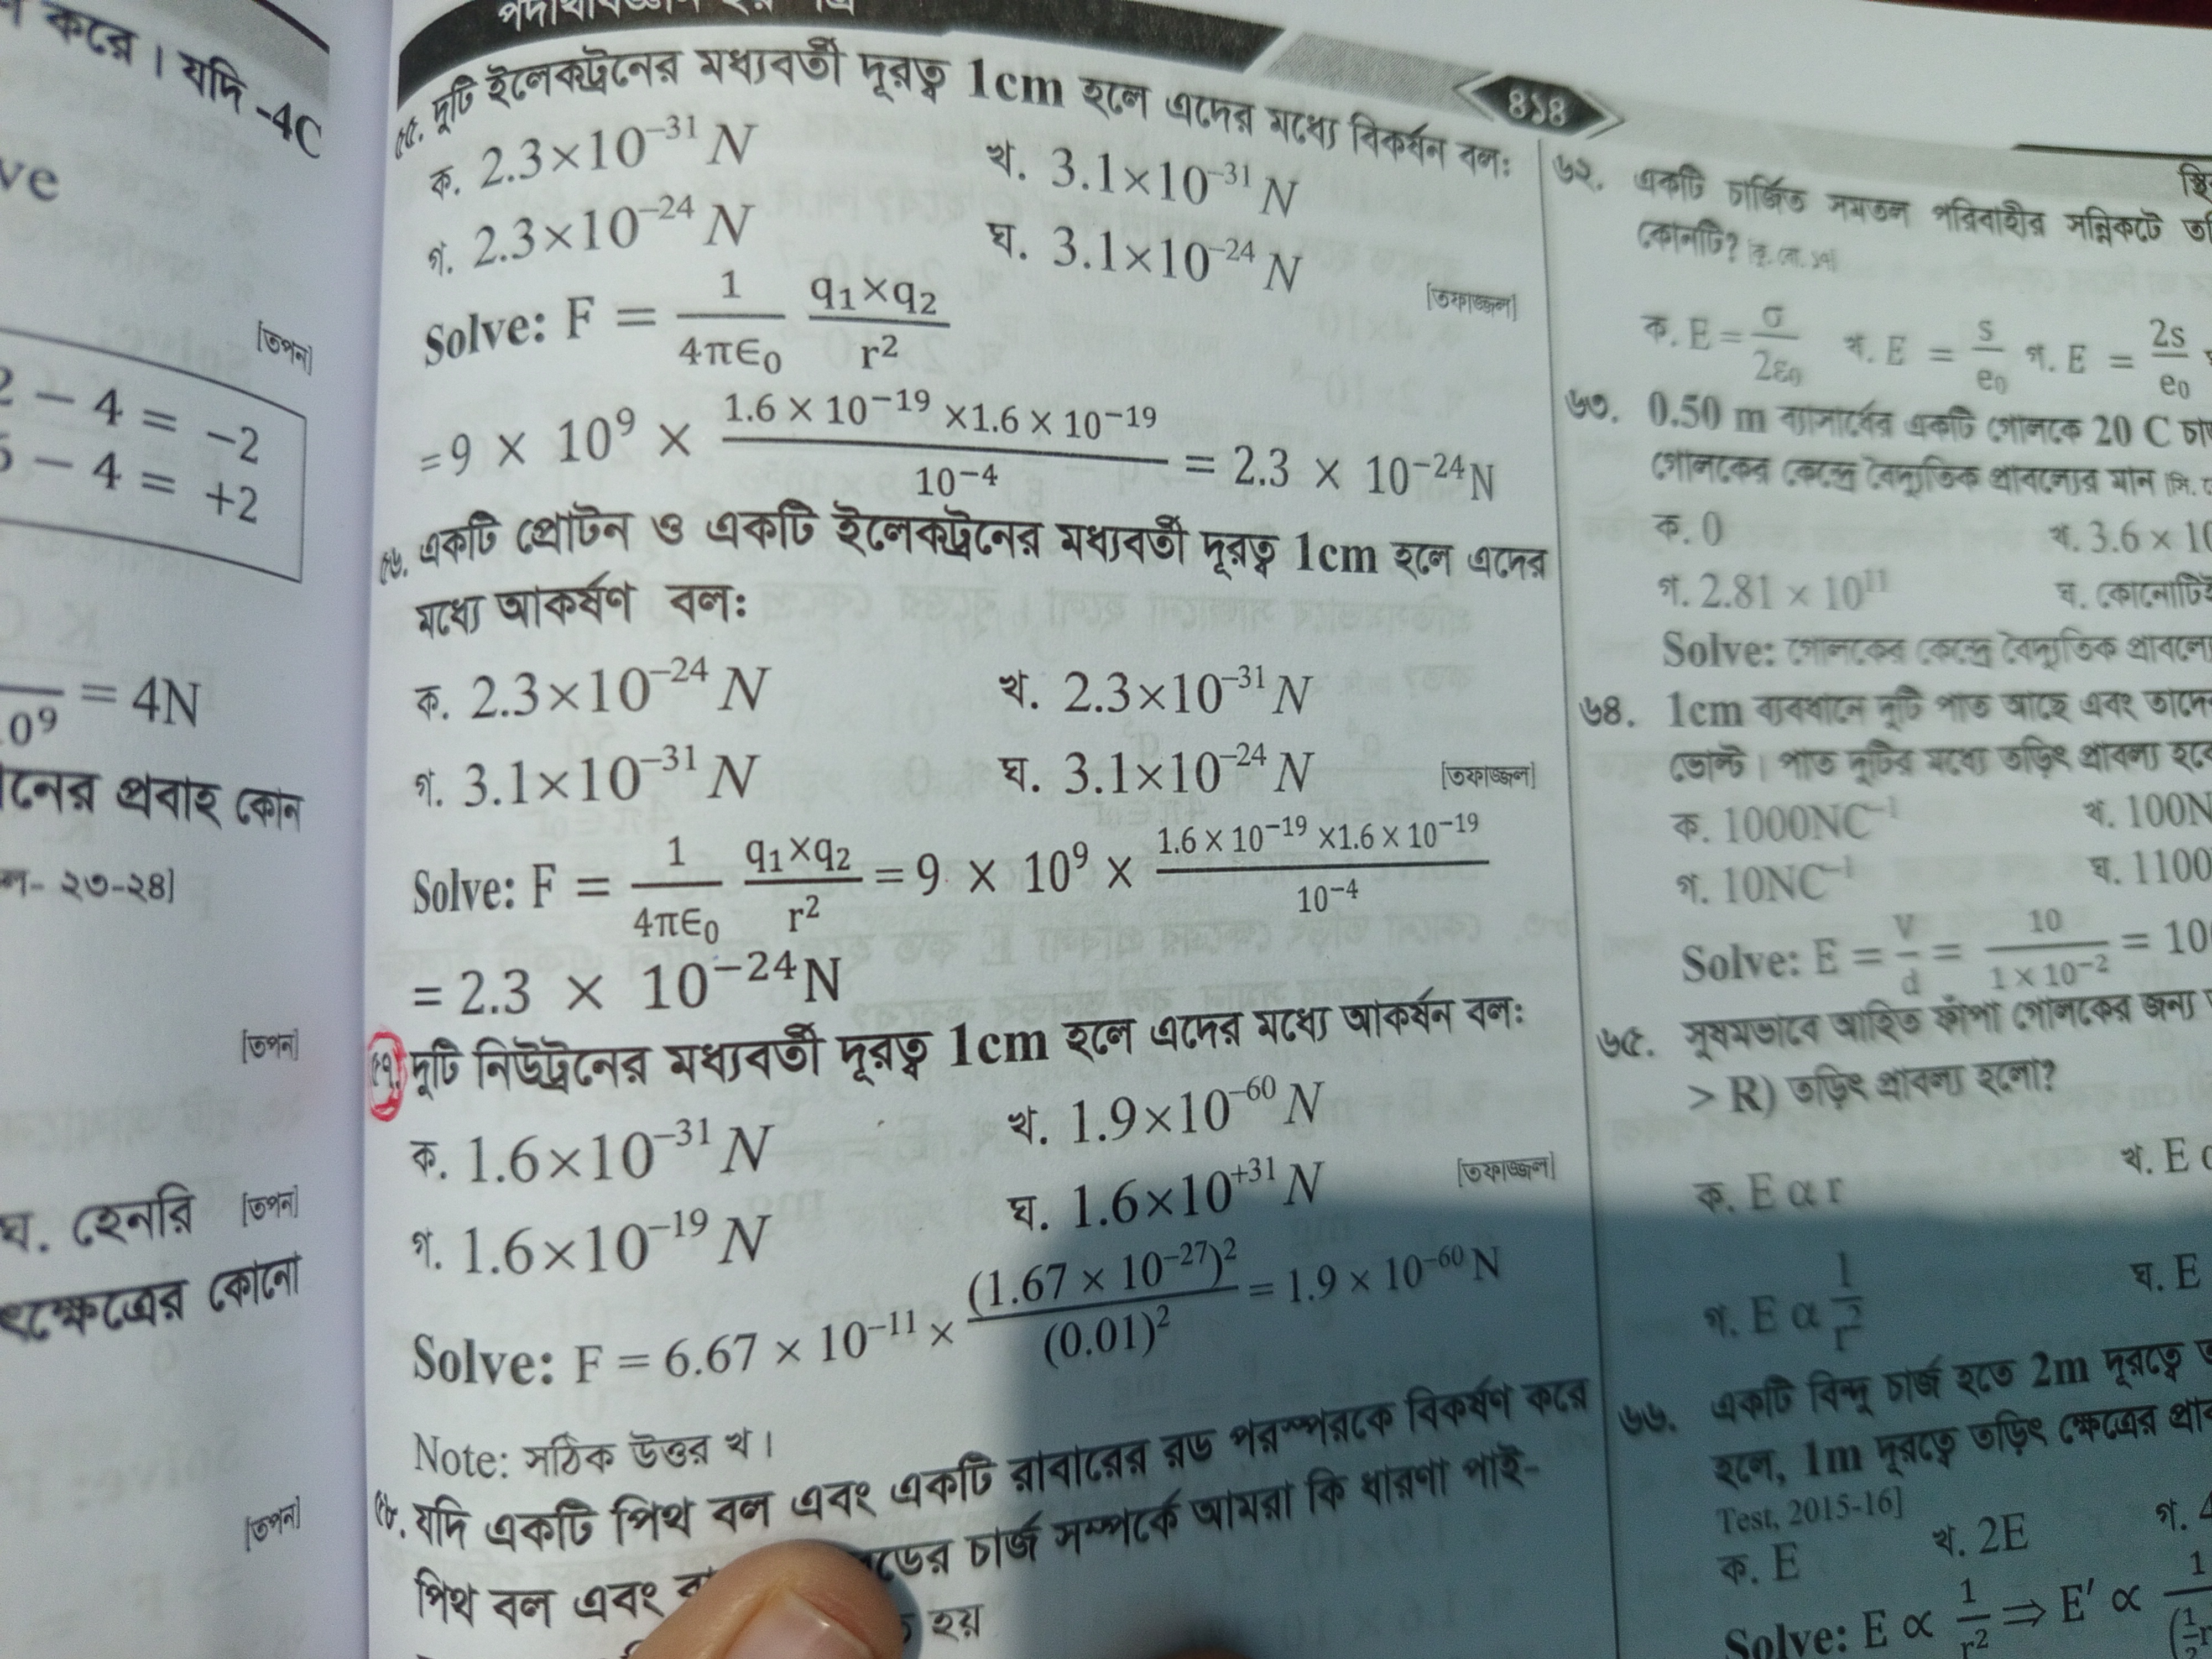 করে। যদি -4C
ve
[তপন]
2 − 4 = −2
5 − 4 = +2
= 4N
নের প্রবাহ কোন
২৩-২৪]
[তপন]
ঘ. হেনরি [তপন]
ক্ষেত্রের কোনো
[তপন]
৪১৪
৫৫. দুটি ইলেকট্রনের মধ্যবর্তী দূরত্ব 1cm হলে এদের মধ্যে বিকর্ষন বল:
ক. 2.3×10⁻³¹ N খ. 3.1×10⁻³¹ N
গ. 2.3×10⁻²⁴ N ঘ. 3.1×10⁻²⁴ N
[তফাজ্জল]
Solve: F = 1/4πϵ₀ q₁×q₂/r²
= 9 × 10⁹ × 1.6 × 10⁻¹⁹ ×1.6 × 10⁻¹⁹/10⁻⁴ = 2.3 × 10⁻²⁴N
৫৬. একটি প্রোটন ও একটি ইলেকট্রনের মধ্যবর্তী দূরত্ব 1cm হলে এদের
মধ্যে আকর্ষণ বল:
ক. 2.3×10⁻²⁴ N খ. 2.3×10⁻³¹ N
গ. 3.1×10⁻³¹ N ঘ. 3.1×10⁻²⁴ N [তফাজ্জল]
Solve: F = 1/4πϵ₀ q₁×q₂/r² = 9 × 10⁹ × 1.6 × 10⁻¹⁹ ×1.6 × 10⁻¹⁹/10⁻⁴
= 2.3 × 10⁻²⁴N
৫৭. দুটি নিউট্রনের মধ্যবর্তী দূরত্ব 1cm হলে এদের মধ্যে আকর্ষন বল:
ক. 1.6×10⁻³¹ N খ. 1.9×10⁻⁶⁰ N
গ. 1.6×10⁻¹⁹ N ঘ. 1.6×10⁺³¹ N [তফাজ্জল]
Solve: F = 6.67 × 10⁻¹¹ × (1.67 × 10⁻²⁷)²/(0.01)² = 1.9 × 10⁻⁶⁰ N
Note: সঠিক উত্তর খ।
৫৮. যদি একটি পিথ বল এবং একটি রাবারের রড পরস্পরকে বিকর্ষণ করে
পিথ বল এবং চার্জ সম্পর্কে আমরা কি ধারণা পাই-
হয়
৬২. একটি চার্জিত সমতল পরিবাহীর সন্নিকটে
কোনটি?
ক. E = σ/2ε₀ খ. E = s/e₀ গ. E = 2s/e₀
৬৩. 0.50 m ব্যাসার্ধের একটি গোলকে 20 C
গোলকের কেন্দ্রে বৈদ্যুতিক প্রাবল্যের মান
ক. 0 খ. 3.6 × 10
গ. 2.81 × 10¹¹ ঘ. কোনোটিই
Solve: গোলকের কেন্দ্রে বৈদ্যুতিক
৬৪. 1cm ব্যবধানে দুটি পাত আছে এবং
ভোল্ট। পাত দুটির মধ্যে তড়িৎ প্রাবল্য
ক. 1000NC⁻¹ খ. 100N
গ. 10NC⁻¹ ঘ. 1100
Solve: E = V/d = 10/1 × 10⁻² = 10
৬৫. সুষমভাবে আহিত ফাঁপা গোলকের জন্য
> R) তড়িৎ প্রাবল্য হলো?
ক. E α r খ. E
গ. E α 1/r² ঘ. E
৬৬. একটি বিন্দু চার্জ হতে 2m দূরত্বে
হলে, 1m দূরত্বে তড়িৎ ক্ষেত্রের
Test, 2015-16]
ক. E খ. 2E গ.
Solve: E ∝ 1/r² ⇒ E′ ∝